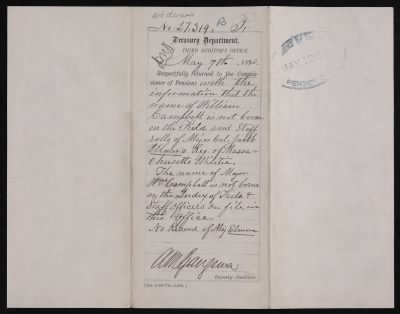 No 27.319,
Treasury Department,
THIRD AUDITOR'S OFFICE,
May 7th,
Respectfully returned to the Commis-
sioner of Pensions with the
information that the
name of William
Campbell is not borne
on the Field and Staff
rolls of Maj. or Col. Jacob
Reg. of Massa-
chusetts Militia.
The name of Major
Wm Campbell is not borne
on the Index of Field &
Staff officers on file in
this Office.
No Record of Maj
Deputy Auditor.